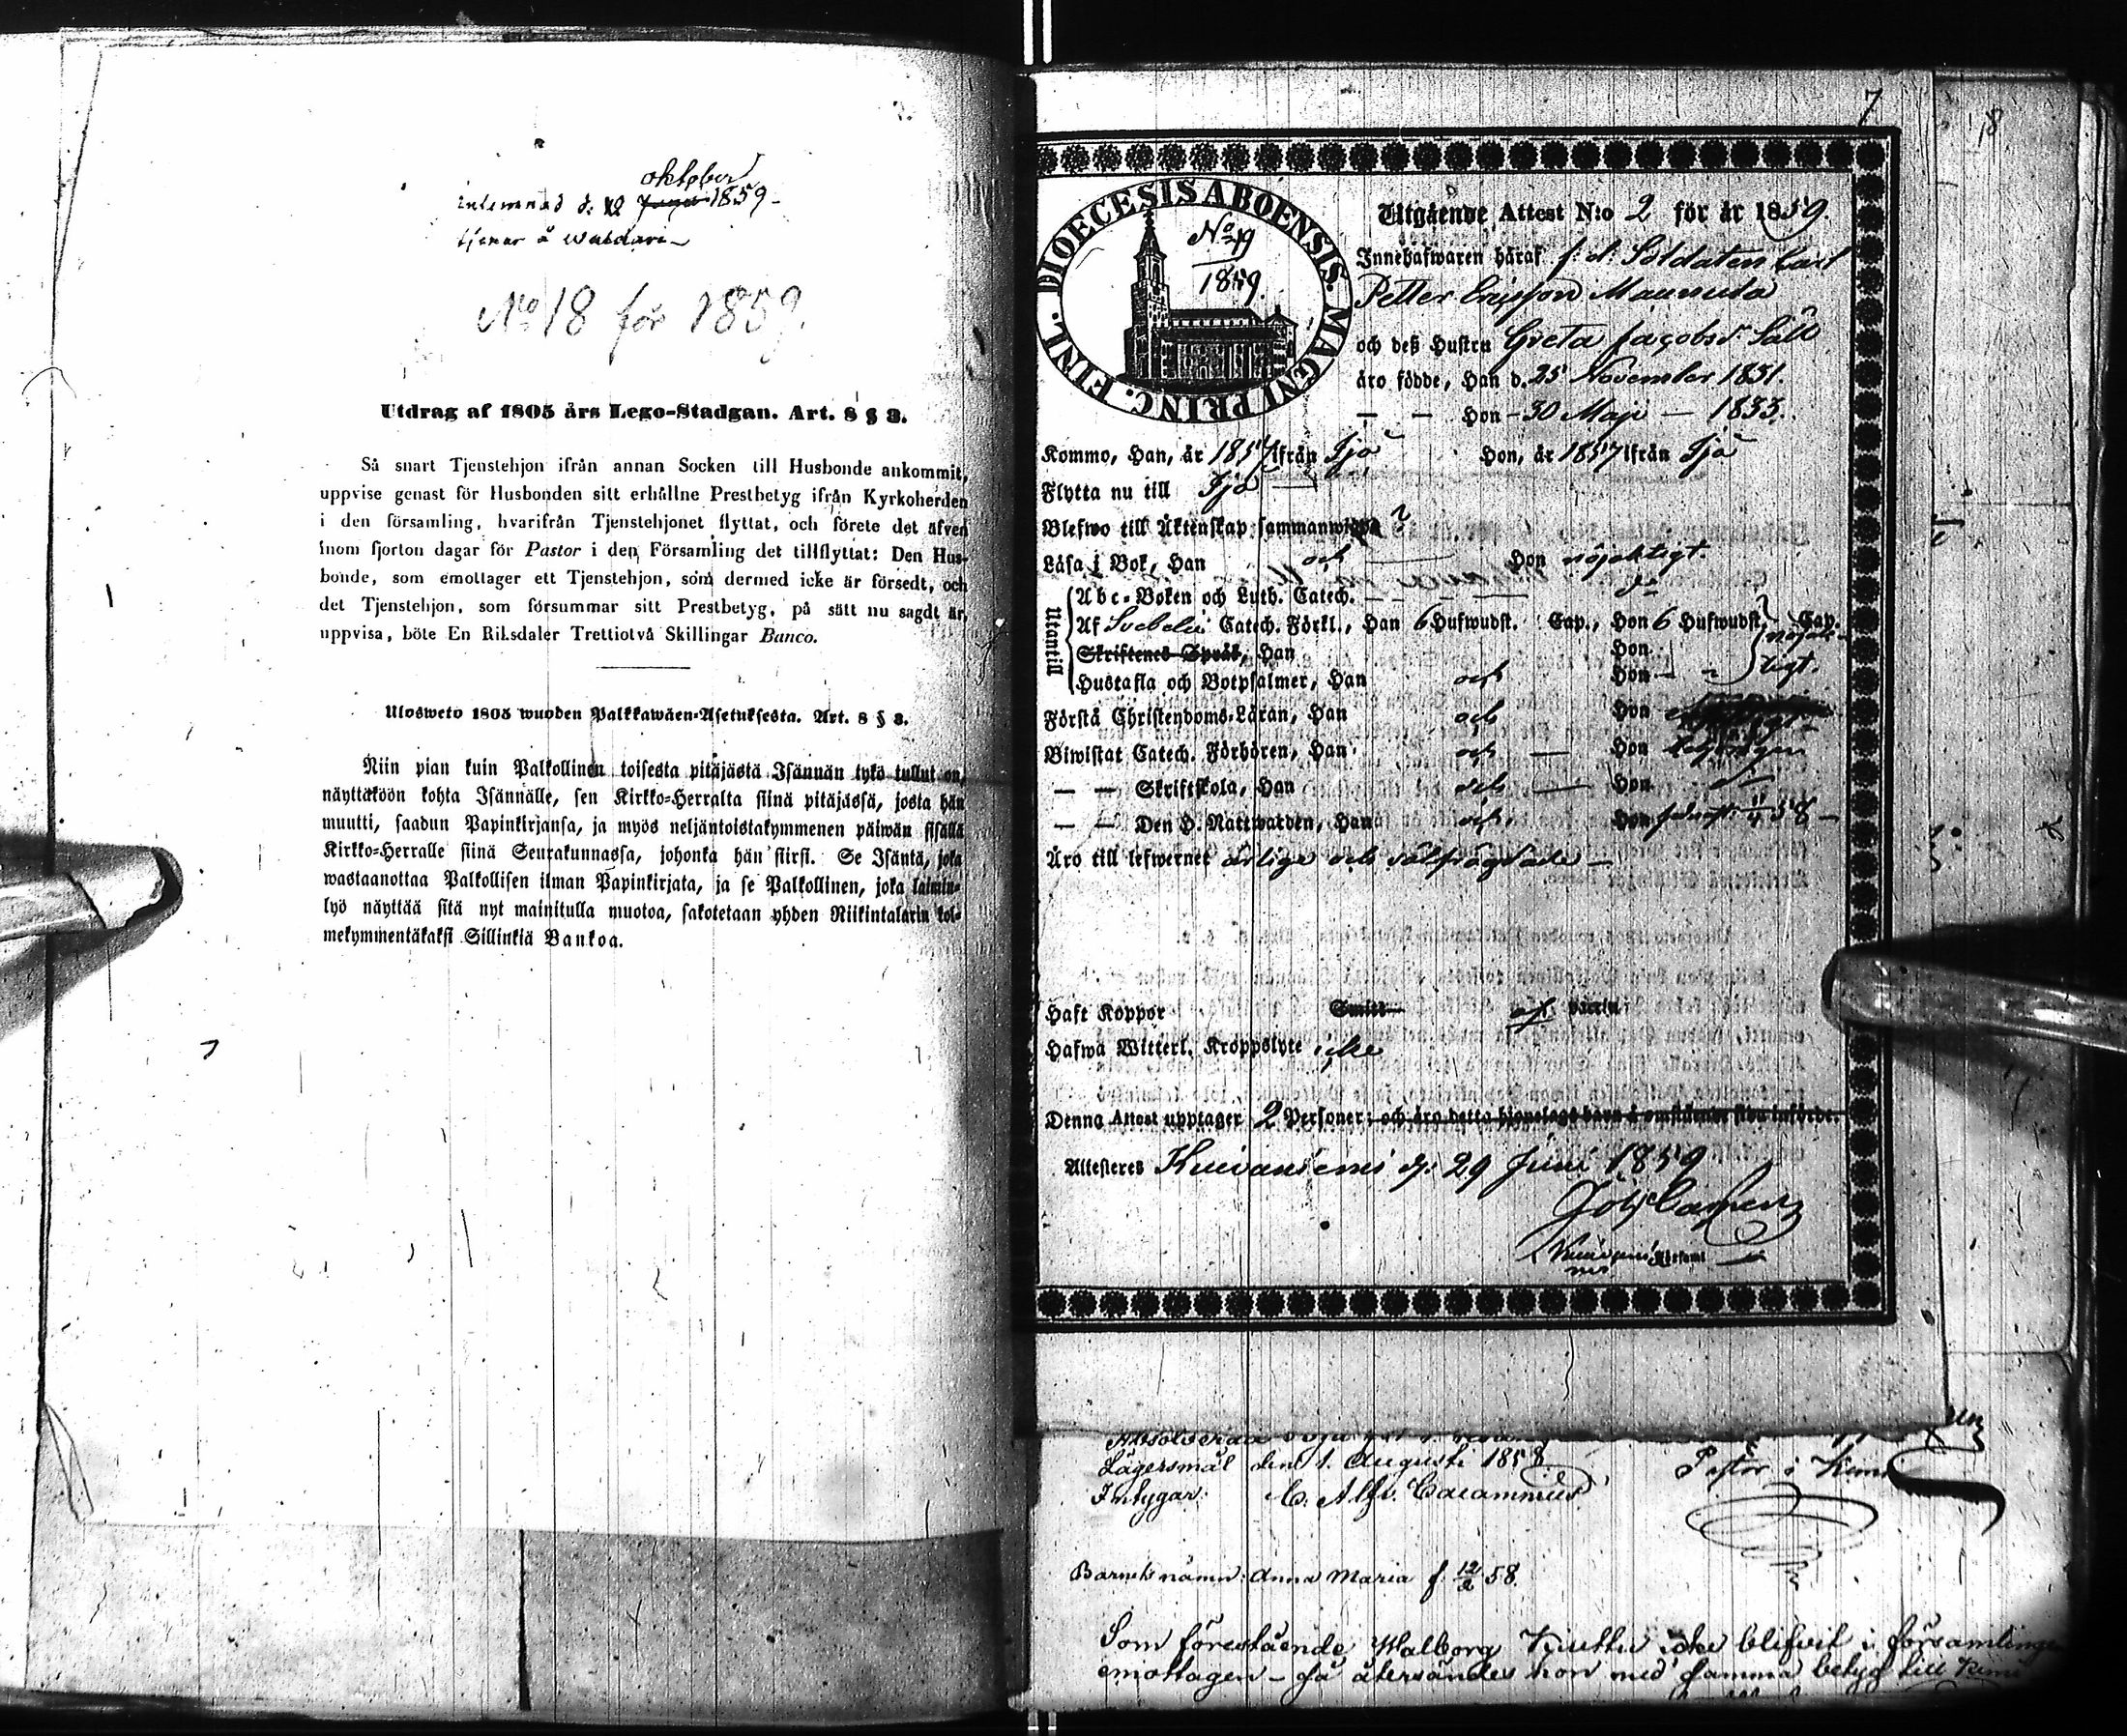 oktober
inlemnad d. 12 Juni 1859
tjenar å
No 18 för 1859.
Utdrag af 1805 års Lego-Stadgan. Art. 8 § 3.
Så snart Tjenstehjon ifrån annan Socken till Husbonde ankommit,
uppvise genast för Husbonden sitt erhållne Prestbetyg ifrån Kyrkoherden
i den församling, hvarifrån Tjenstehjonet flyttat, och förete det äfven
inom fjorton dagar för Pastor i den Församling det tillflyttat: Den Hus-
bonde, som emottager ett Tjenstehjon, som dermed icke är försedt, och
det Tjenstehjon, som försummar sitt Prestbetyg, på sätt nu sagdt är,
uppvisa, böte En Riksdaler Trettiotvå Skillingar Banco.
Ulosweto 1805 wuoden Palkkawäen-Asetuksesta. Art. 8 § 3.
Niin pian kuin Palkollinen toisesta pitäjästä Isännän tykö tullut on,
näyttäköön kohta Isännälle, sen Kirkko-Herralta siinä pitäjässä, josta hän
muutti, saadun Papinkirjansa, ja myös neljäntoistakymmenen päiwän sisällä
Kirkko-Herralle siinä Seurakunnassa, johonka hän siirsi. Se Isäntä, joka
wastaanottaa Palkollisen ilman Papinkirjata, ja se Palkollinen, joka laimin-
lyö näyttää sitä nyt mainitulla muotoa, sakotetaan yhden Riikintalarin kol-
mekymmentäkaksi Sillinkiä Bankoa.
7
18
DIOECESIS ABOENSIS. MAGNI PRINC. FINL.
No 19
1859.
Utgående Attest N:o 2 för år 1859.
Innehafwaren häraf f: d: Soldaten Carl
Petter Ericsson Maunula
och deß Hustru Greta Jacobsd:
äro födde, Han d. 25 November 1831.
— — Hon - 30 Maji — 1833.
Kommo, Han, år 1857 ifrån Ijo Hon, år 1857 ifrån Ijo
Flytta nu till Ijo
Blefwo till Äktenskap sammanwigde ?
Läsa i Bok, Han och Hon nöjaktigt.
Utantill
Abc-Boken och Luth. Catech. do
Af Svebelii Catech. Förkl., Han 6 Hufwudst. Cap., Hon 6 Hufwudst. Cap.
Skriftenes Språk, Han Hon nöjak-
Hustafla och Botpsalmer, Han och Hon tigt.
Förstå Christendoms-Läran, Han och Hon
Biwistat Catech. Förhören, Han och Hon
— — Skriftskola, Han och Hon
— — Den H. Nattwarden, Han och Hon 58
Äro till lefwernet ärlige och välfrägdade
Haft Koppor
Hafwa Witterl. Kroppslyte icke
Denna Attest upptager 2 Personer; och äro detta hjonelags barn å omstående sida införde.
Attesteres Kuivaniemi d: 29 Juni 1859
Joh
Absolverad
Lägersmål den 1. Augusti 1858
Intygar: C. Alfr. Cajanus
Pastor i Kemi
Barnets namn: Anna Maria f. 12/2 58.
Som förestående Walborg icke blifvit i församlingen
emottagen - så återsändes hon med samma betyg till Kemi